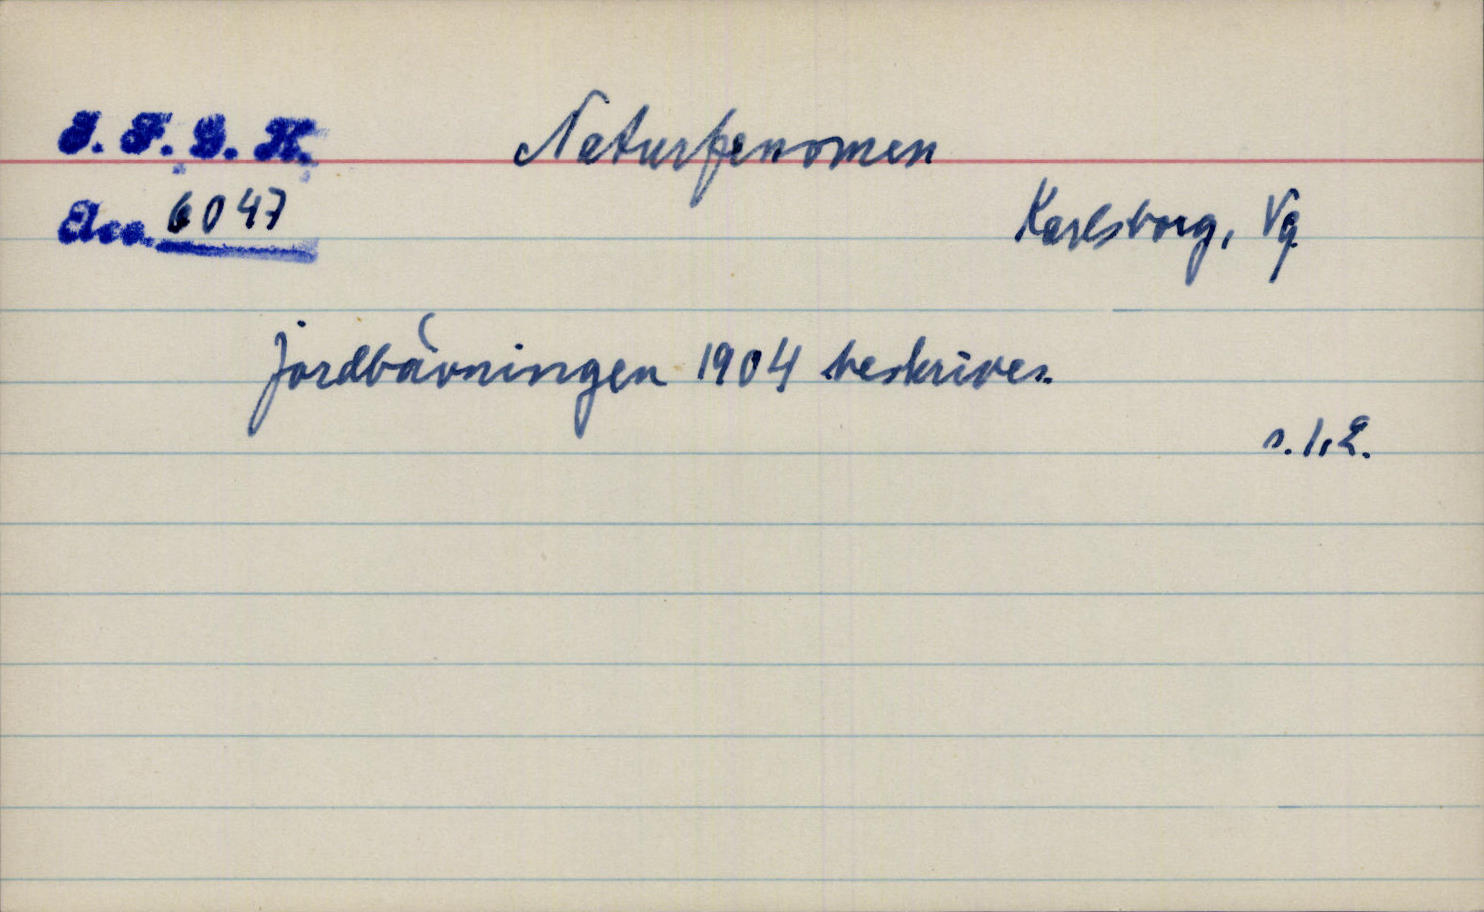 I. F. G. H. Naturfenomen
Acc. 6047
Karlsborg, Vg
Jordbävningen 1904 beskrives.
s. 1, 2.